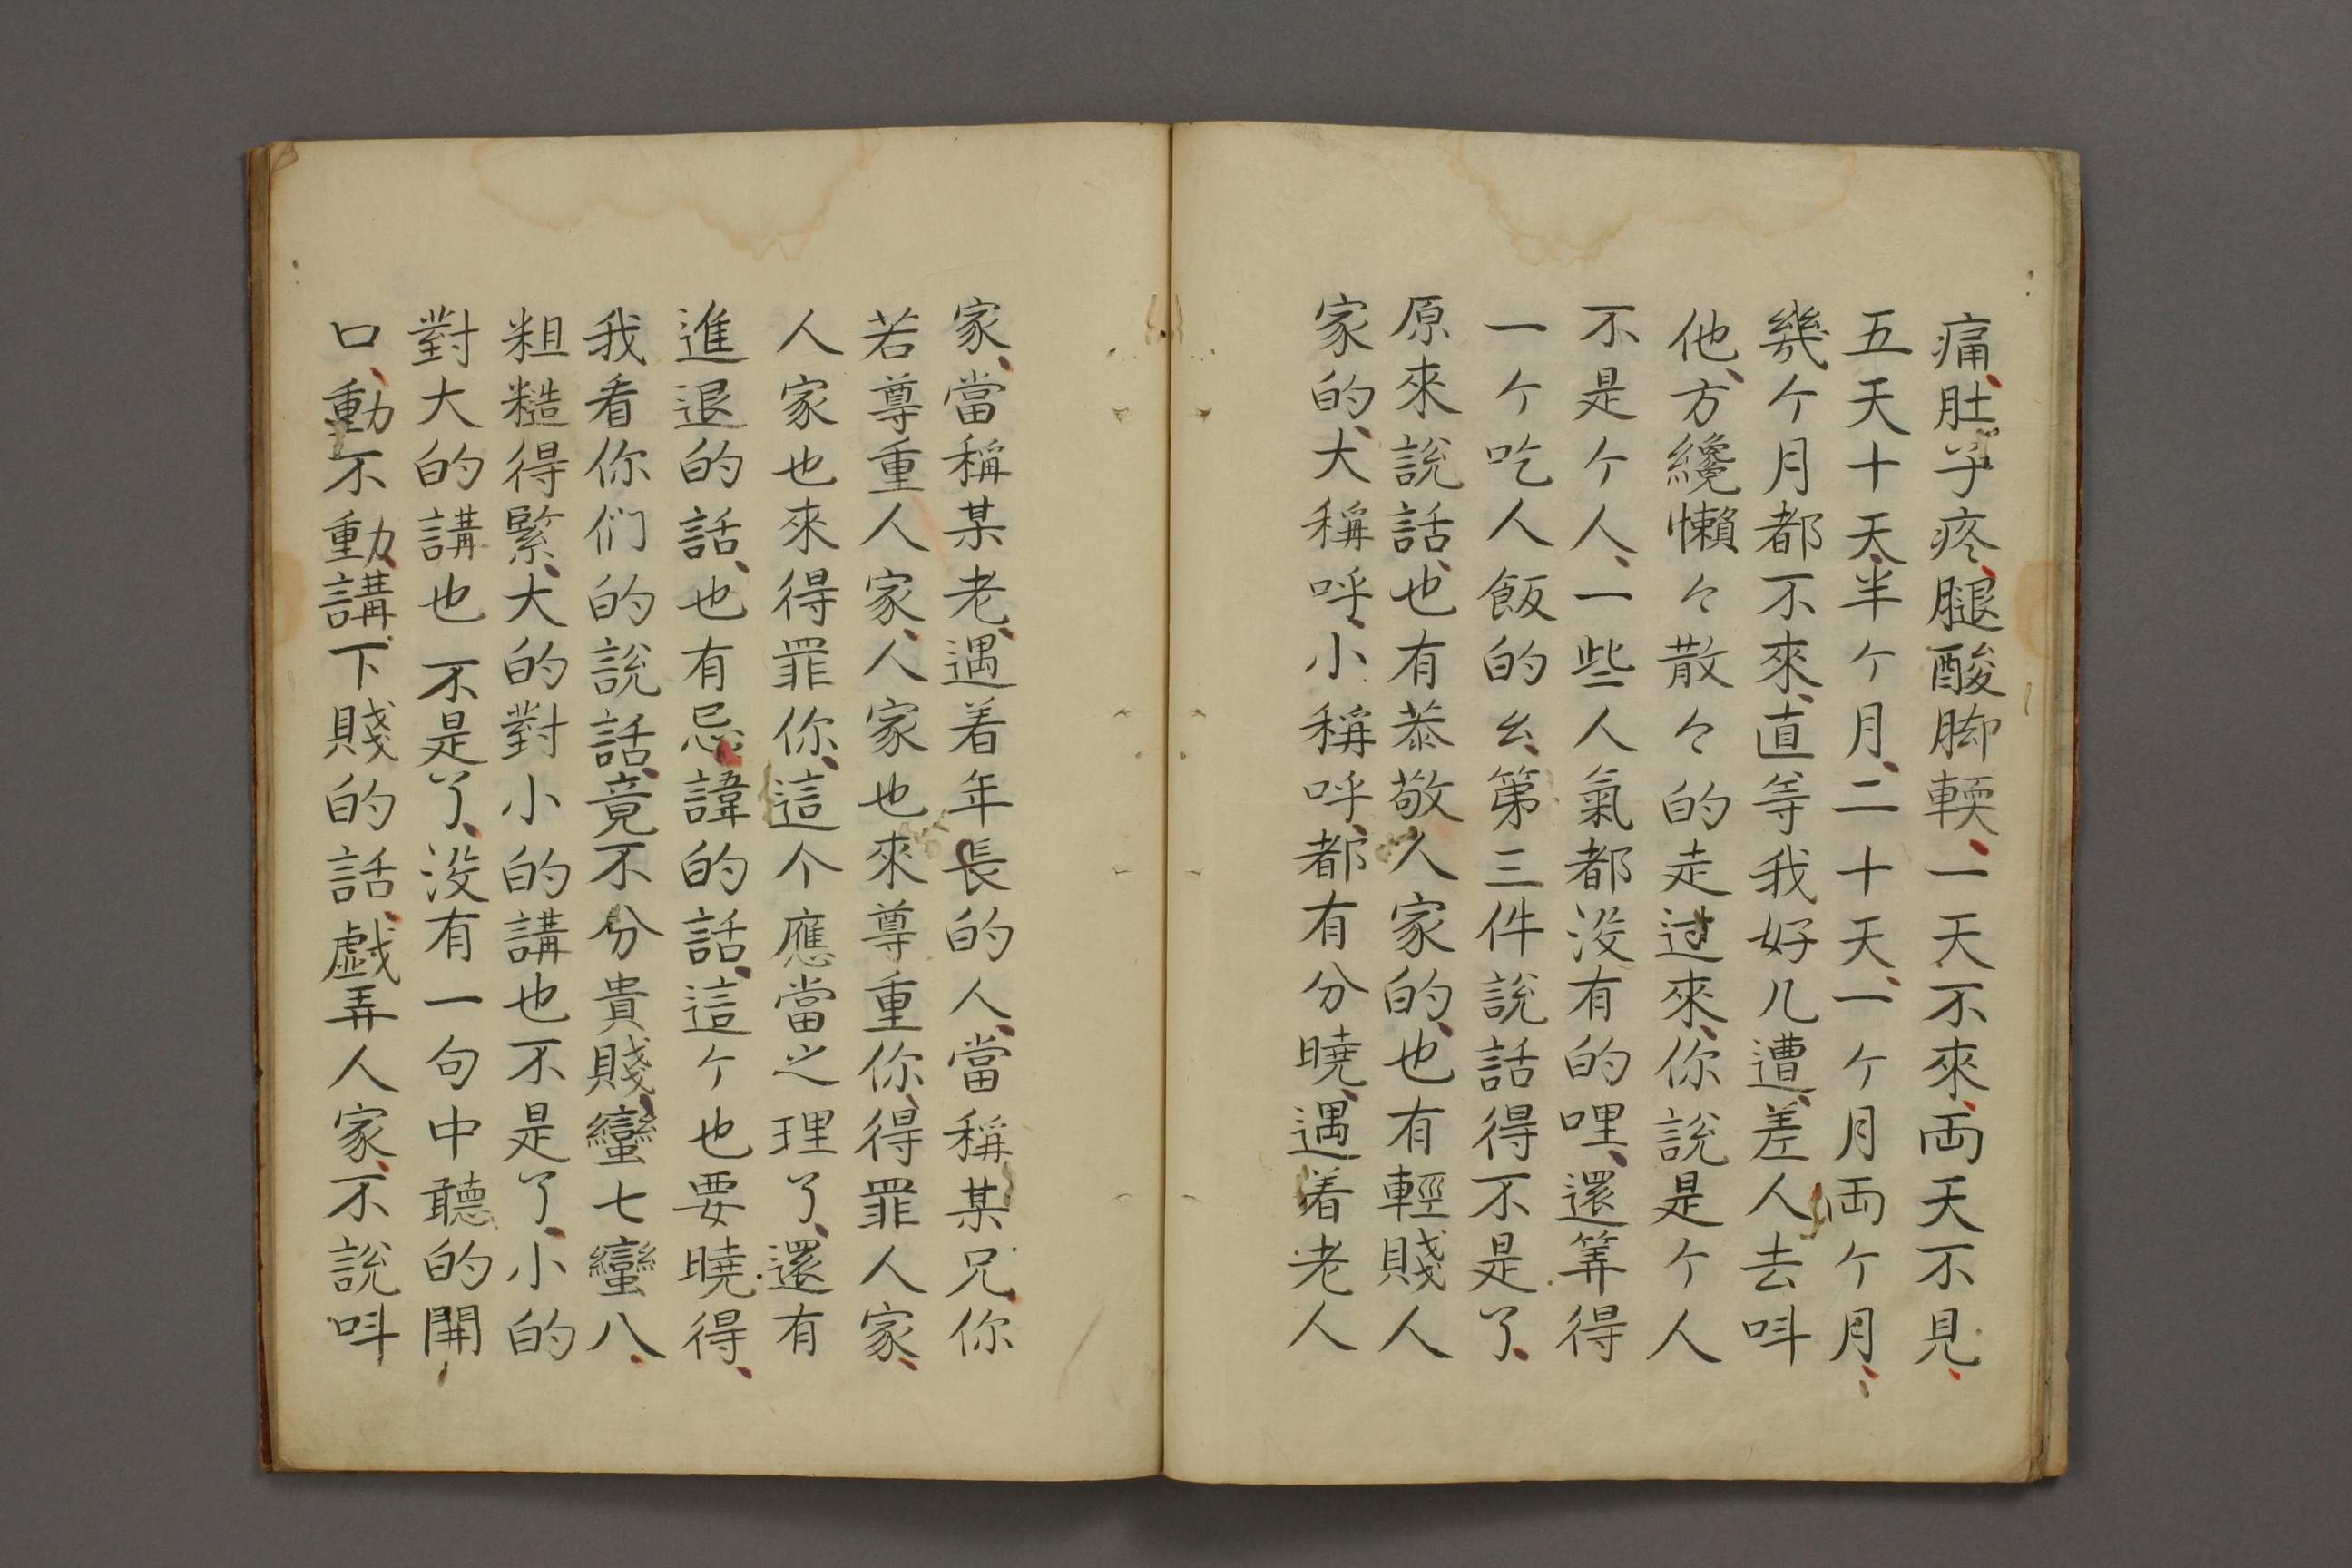 痛、肚子疼、腿酸脚輭、一天不來、両天不見、
五天十天、半ケ月、二十天、一ケ月両ケ月、
幾ケ月都不來、直等我好几遭、差人去呌
他、方纔懶々散々的走过來、你說是ケ人
不是ケ人、一些人氣都没有的哩、還筭得
一ケ吃人飯的么、第三件說話得不是了、
原來說話、也有恭敬人家的、也有輕賤人
家的、大稱呼、小稱呼、都有分曉、遇着老人
家、當稱某老、遇着年長的人、當稱某兄、你
若尊重人家、人家也來尊重你、得罪人家、
人家也來得罪你、這个應當之理了、還有
進退的話、也有忌諱的話、這ケ也要曉得、
我看你们的說話、竟不分貴賤、蠻七蠻八、
粗糙得緊、大的對小的講也不是了、小的
對大的講也不是了、没有一句中聽的、開
口、動不動、講下賤的話、戱弄人家、不說呌